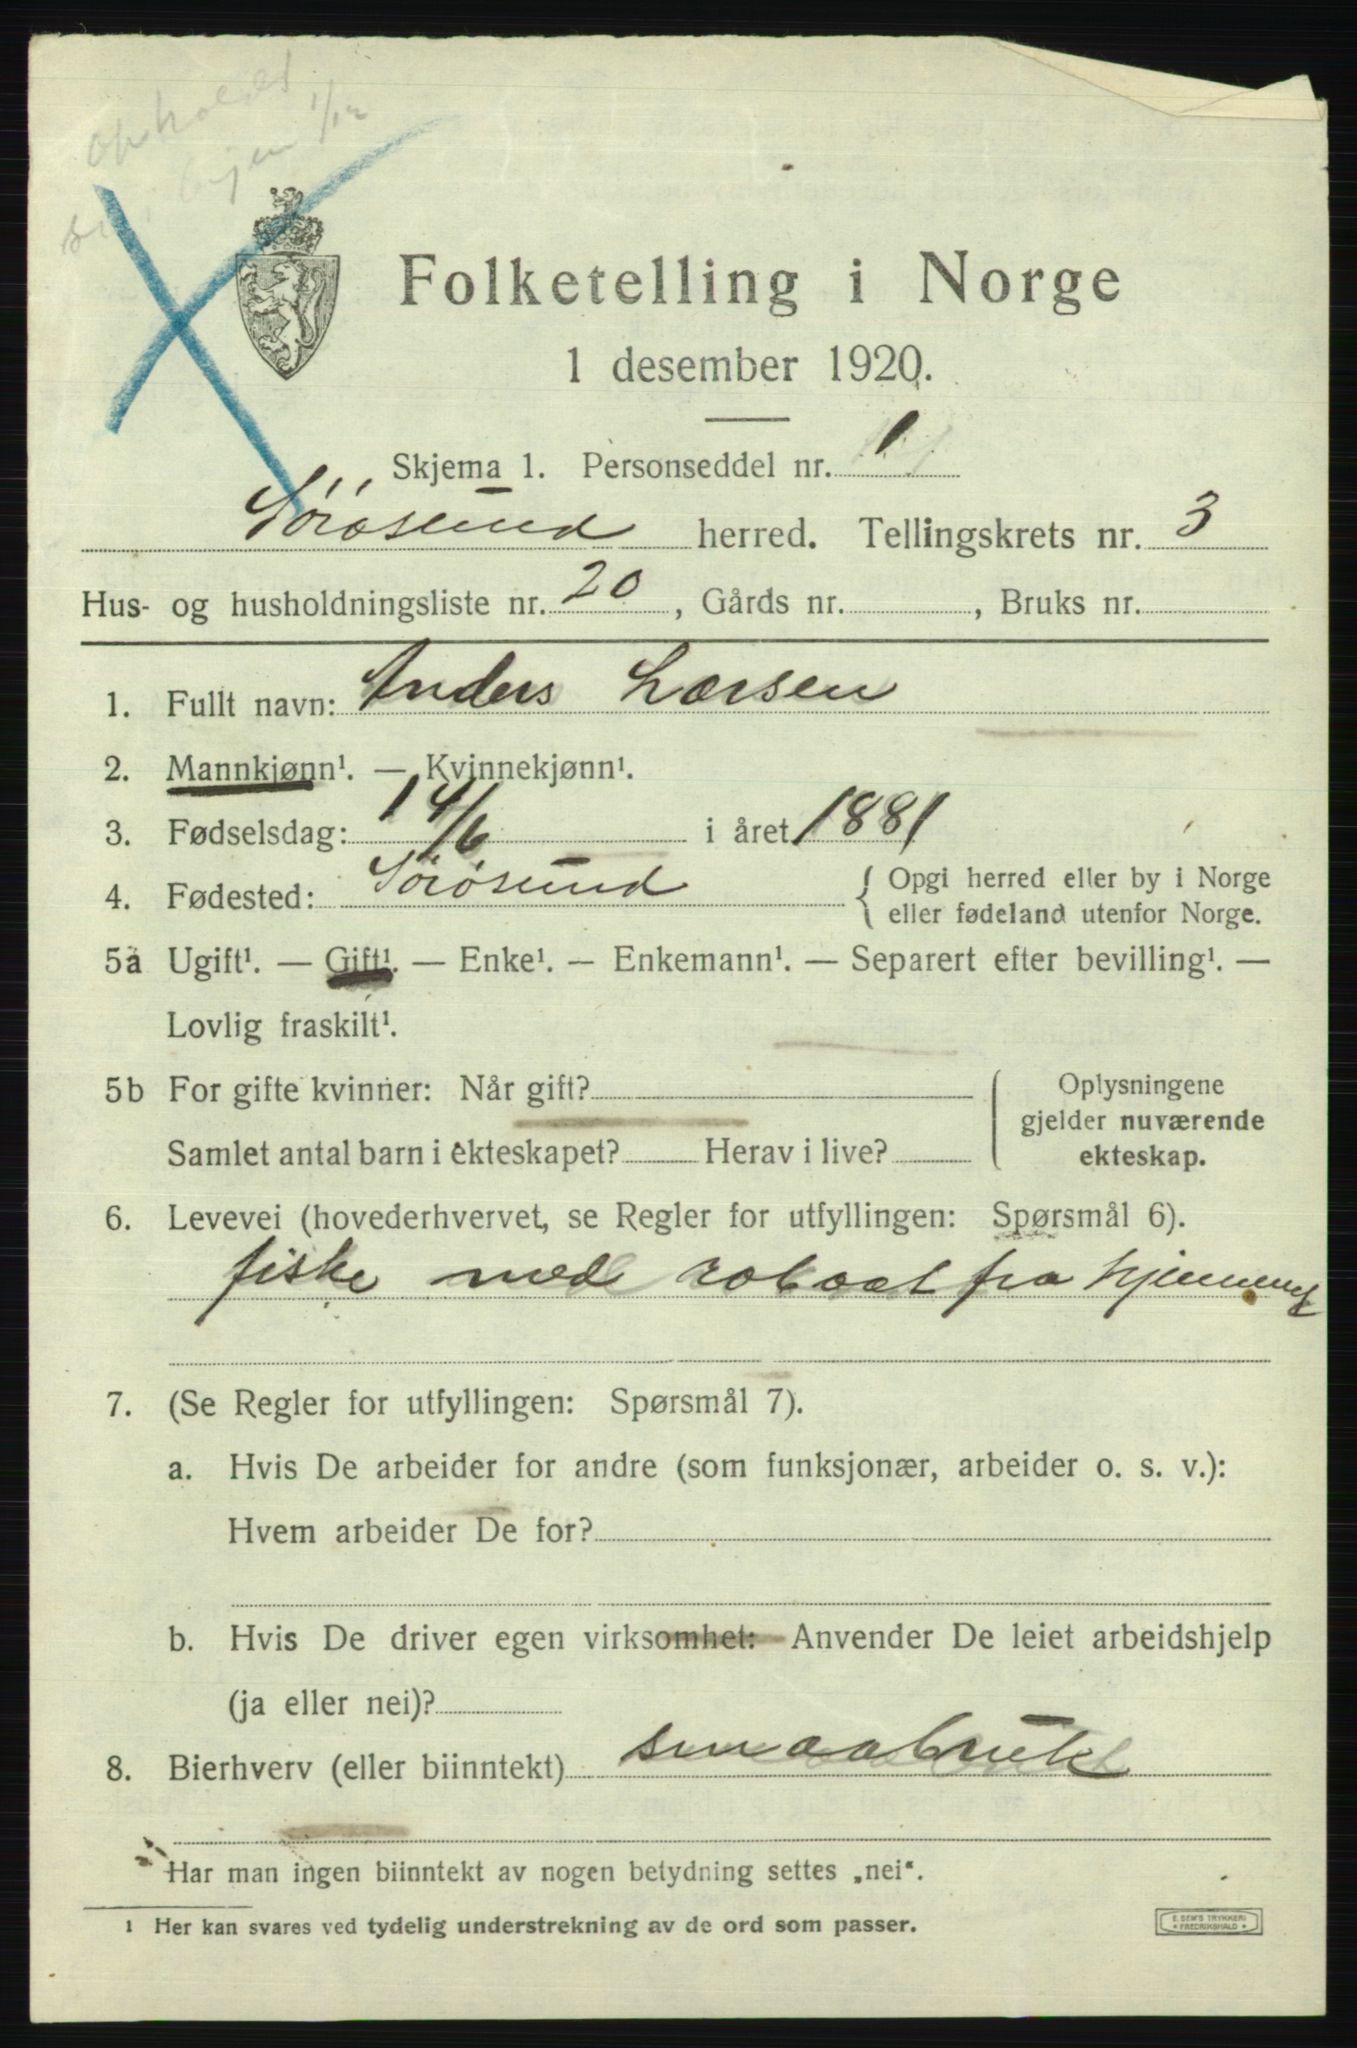 opholdt
byen 1/12
Folketelling i Norge
1 desember 1920.
Skjema 1. Personseddel nr. 1
Sörösund herred. Tellingskrets nr. 3
Hus- og husholdningsliste nr. 20, Gårds nr. , Bruks nr.
1. Fullt navn: Anders Larsen
2. Mannkjønn¹. — Kvinnekjønn¹.
3. Fødselsdag: 14/6 i året 1881
4. Fødested: Sörösund { Opgi herred eller by i Norge
eller fødeland utenfor Norge.
5a Ugift¹. — Gift¹. — Enke¹. — Enkemann¹. — Separert efter bevilling¹. —
Lovlig fraskilt¹.
5b For gifte kvinner: Når gift?
Samlet antal barn i ekteskapet? Herav i live?
Oplysningene
gjelder nuværende
ekteskap.
6. Levevei (hovederhvervet, se Regler for utfyllingen: Spørsmål 6).
fiske med robaat fra hjemmet
7. (Se Regler for utfyllingen: Spørsmål 7).
a. Hvis De arbeider for andre (som funksjonær, arbeider o. s. v.):
Hvem arbeider De for?
b. Hvis De driver egen virksomhet: Anvender De leiet arbeidshjelp
(ja eller nei)?
8. Bierhverv (eller biinntekt) smaabruk
Har man ingen biinntekt av nogen betydning settes „nei“.
¹ Her kan svares ved tydelig understrekning av de ord som passer.
E. SEM'S TRYKKERI
FREDRIKSHALD